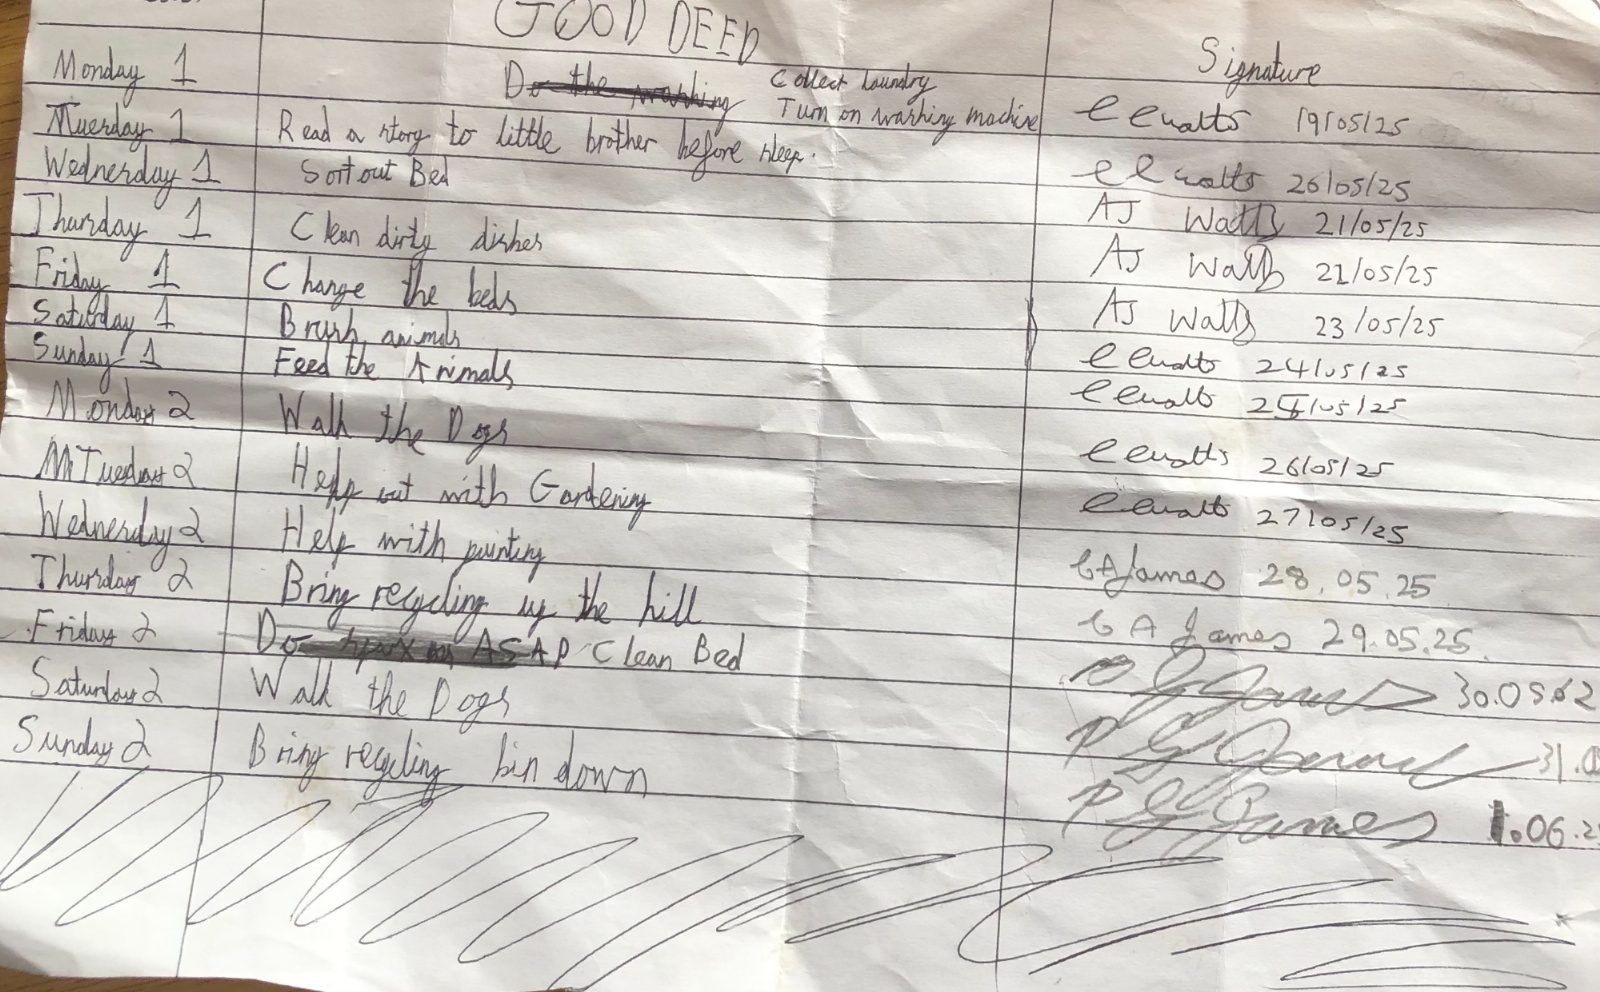 GOOD DEED
Signature
Monday 1 Do the washing Collect laundry
Turn on washing machine eewatts 19/05/25
Tuesday 1 Read a story to little brother before sleep. eewatts 26/05/25
Wednesday 1 Sort out Bed AJ Watts 21/05/25
Thursday 1 Clean dirty dishes AJ Watts 21/05/25
Friday 1 Change the beds AJ Watts 23/05/25
Saturday 1 Brush animals eewatts 24/05/25
Sunday 1 Feed the Animals eewatts 25/05/25
Monday 2 Walk the Dogs eewatts 26/05/25
Tuesday 2 Help out with Gardening eewatts 27/05/25
Wednesday 2 Help with painting James 28.05.25
Thursday 2 Bring recycling up the hill A James 29.05.25.
Friday 2 Do ASAP Clean Bed 30.05
Saturday 2 Walk the Dogs 31.0
Sunday 2 Bring recycling bin down James 1.06.2